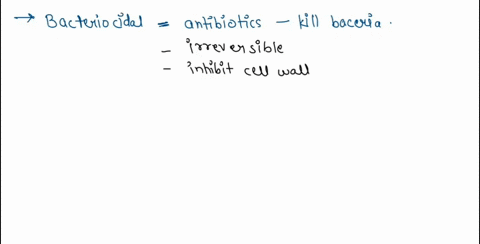 → Bacteriocidal = antibiotics - kill baceria.
- irreversible
- inhibit cell wall